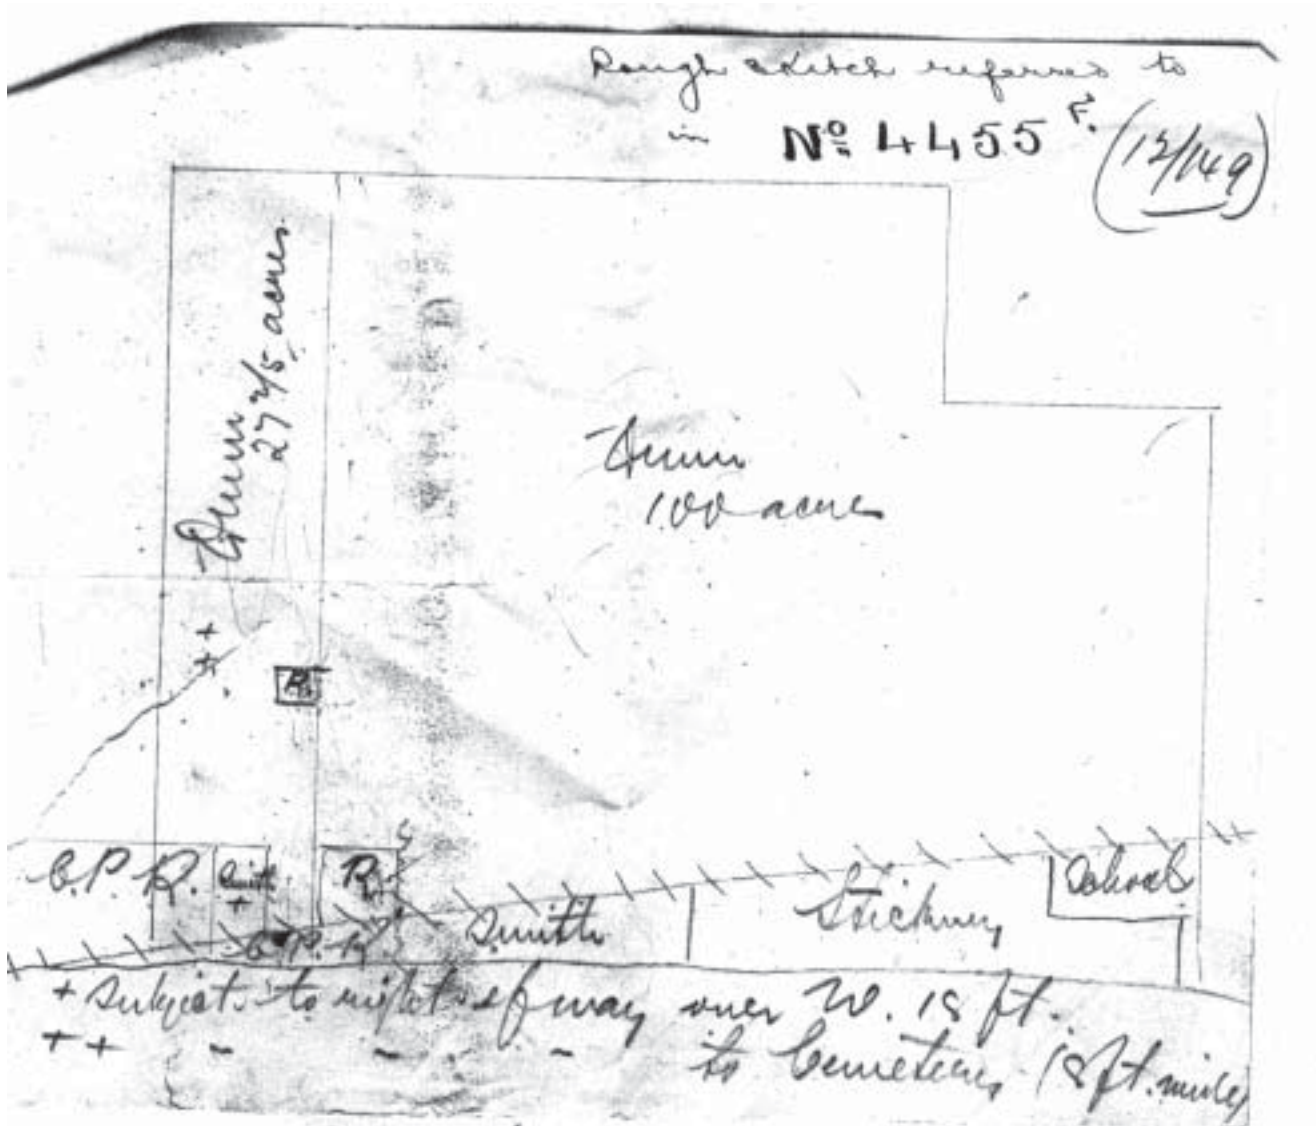 Rough sketch referred to
in Nº 4455 F. (12/149)
27 2/5 acres
100 acres
R.
C.P.R.
Smith
+
R.
C.P.R.
Smith
Stickney
School
+ Subject to right of way over W. 18 ft.
++ - - - to Cemetery 18 ft. wide
++